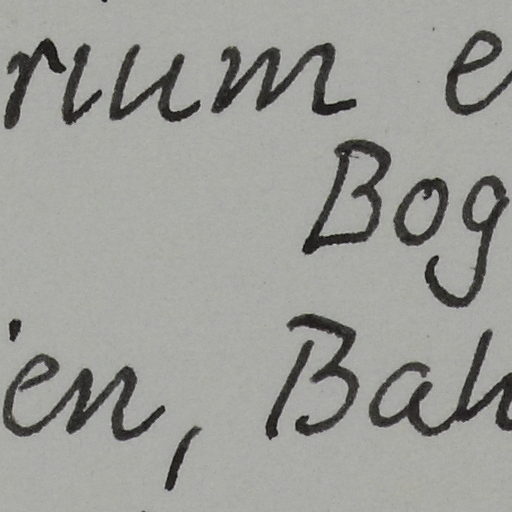 rium e
Bog
ien, Bah